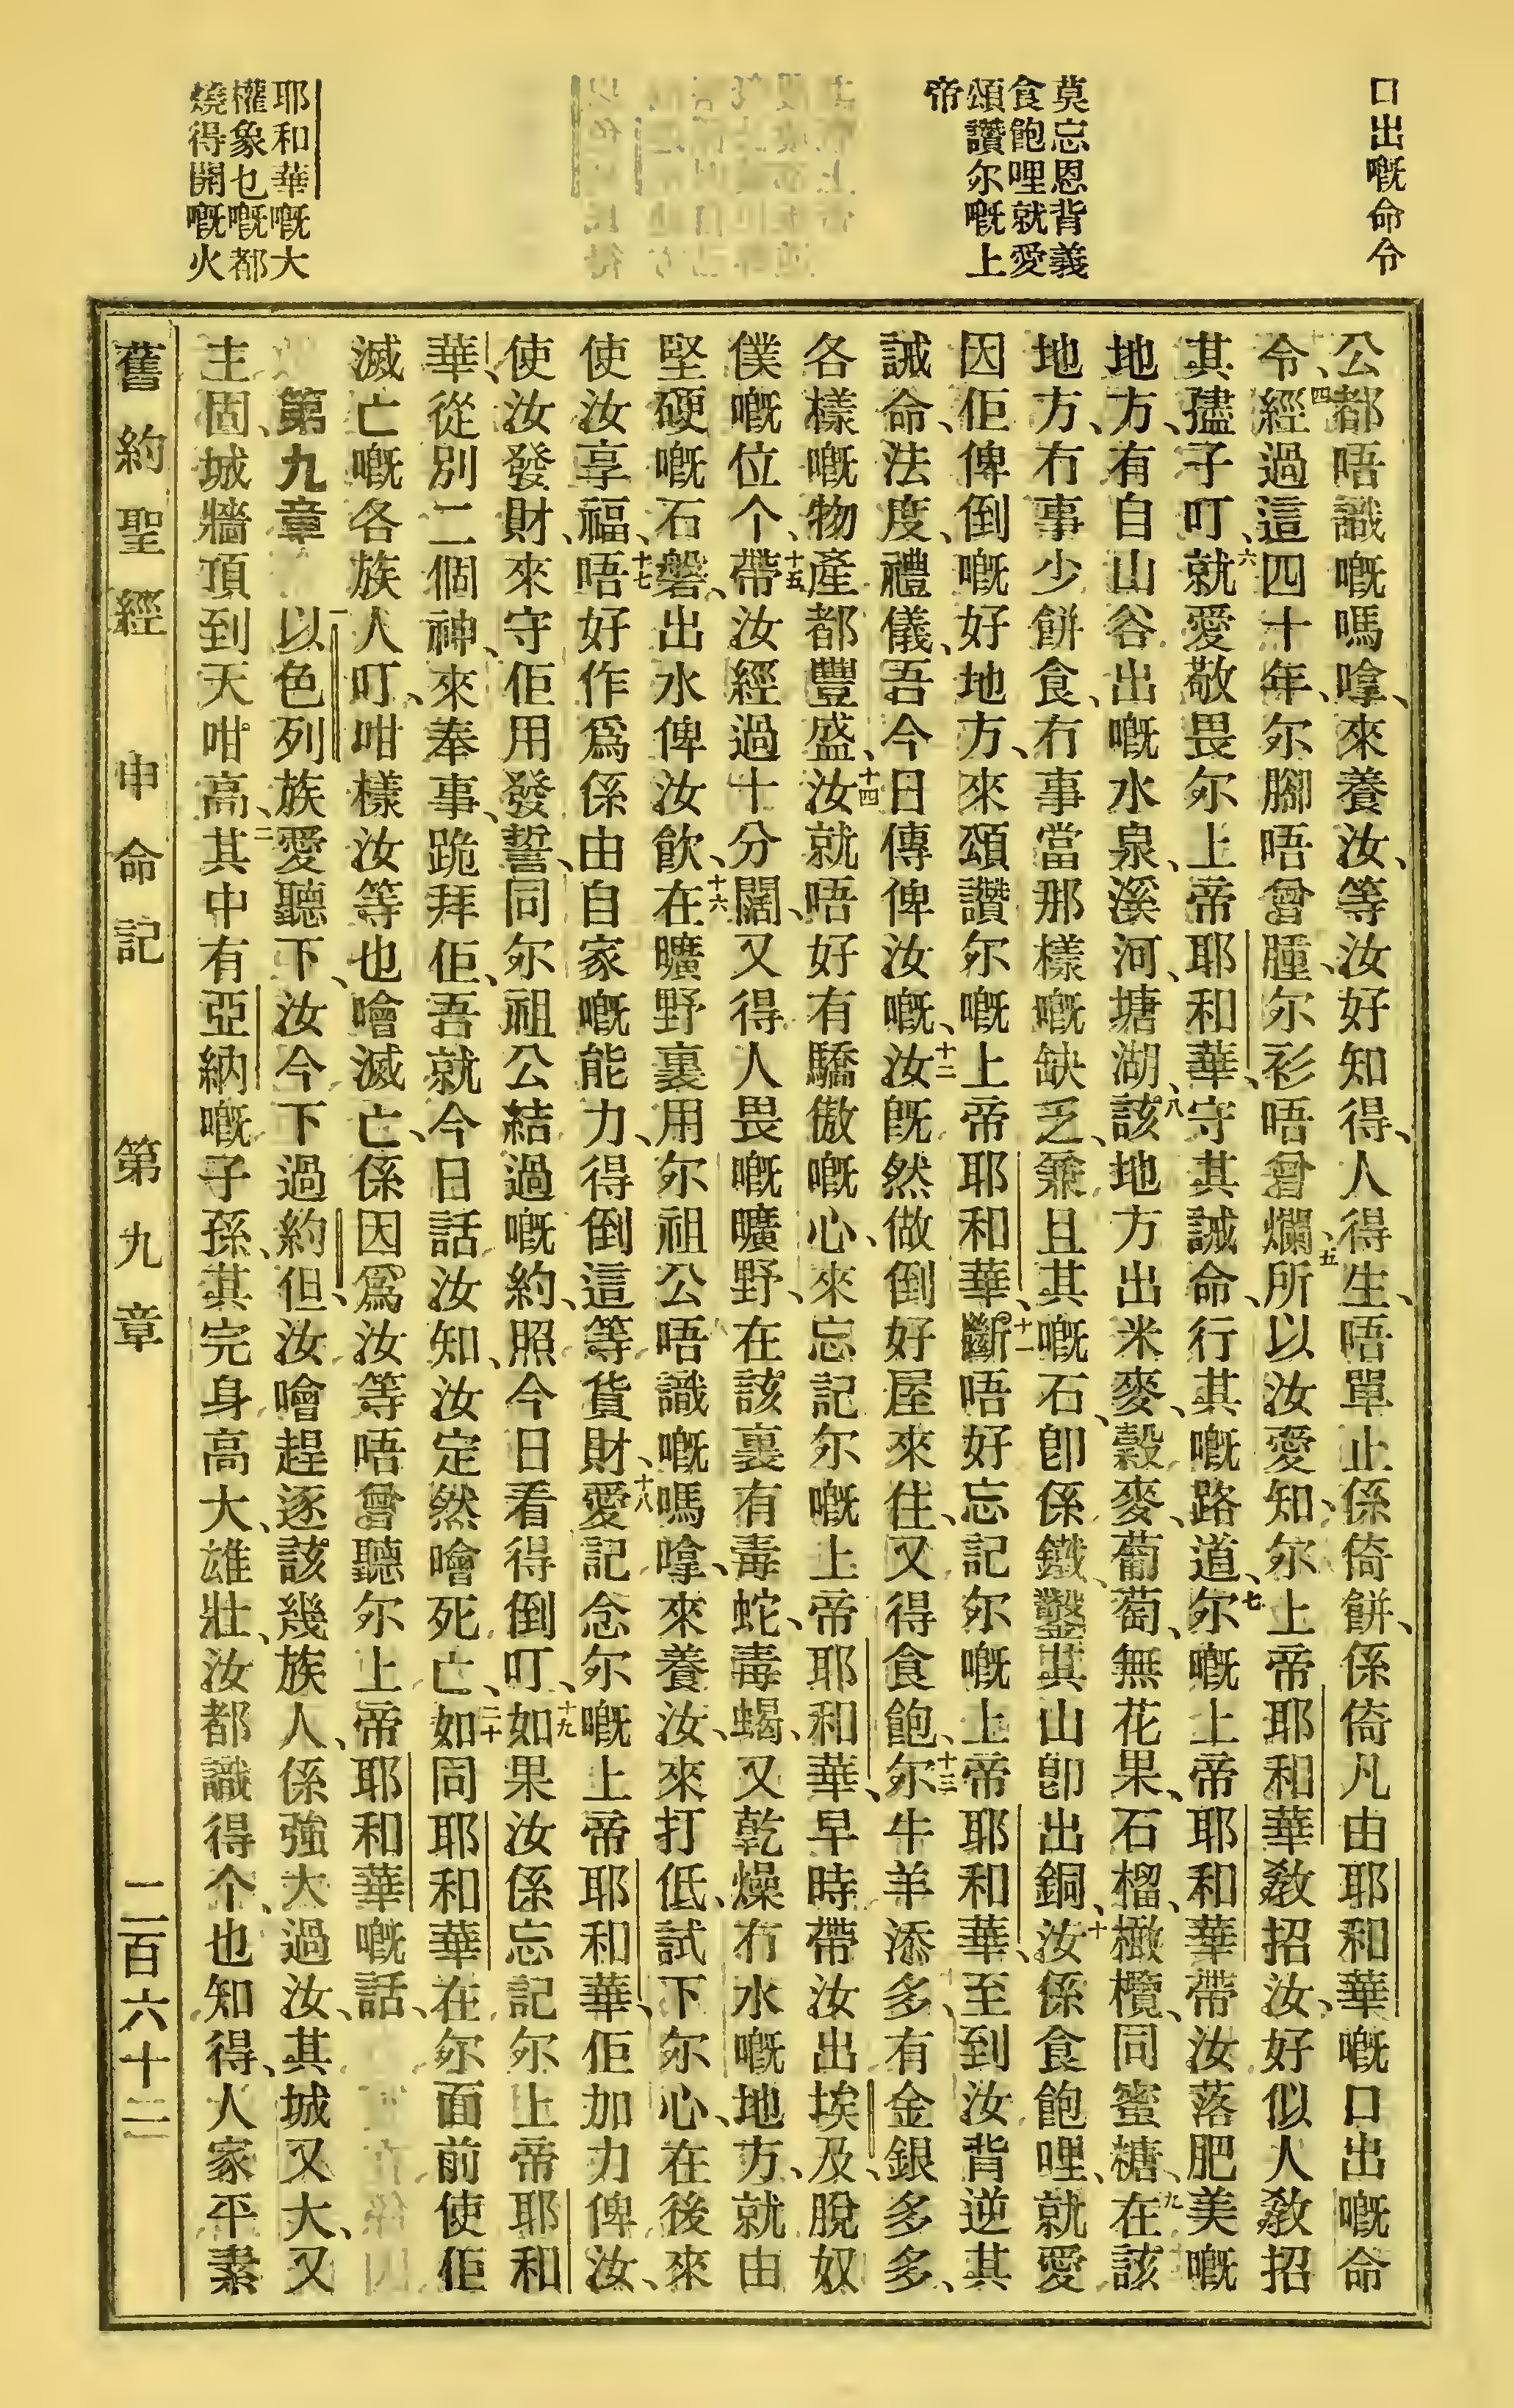 口出嘅命令
莫忘恩背義
食飽哩就愛
頌讚尔嘅上
帝
耶和華嘅大
權象乜嘅都
燒得開嘅火
公都唔識嘅嗎嗱、來養汝、等汝好知得、人得生、唔單止係倚餅、係倚凡由耶和華嘅口出嘅命
令、四經過這四十年、尔腳唔曾腫、尔衫唔曾爛、五所以汝愛知、尔上帝耶和華教招汝、好似人教招
其孻子叮、六就愛敬畏尔上帝耶和華、守其誡命、行其嘅路道、七尔嘅上帝耶和華帶汝落肥美嘅
地方、有自山谷出嘅水泉、溪河、塘湖、八該地方出米麥、穀麥、葡萄、無花果、石榴、橄欖、同蜜糖、九在該
地方、冇事少餅食、冇事當那樣嘅缺乏、兼且其嘅石、卽係鐵、鑿其山卽出銅、十汝係食飽哩、就愛
因佢俾倒嘅好地方、來頌讚尔嘅上帝耶和華、十一斷唔好忘記尔嘅上帝耶和華、至到汝背逆其
誡命、法度、禮儀、吾今日傳俾汝嘅、十二汝旣然做倒好屋來住、又得食飽、十三尔牛羊添多、有金銀多多、
各樣嘅物產都豐盛、十四汝就唔好有驕傲嘅心、來忘記尔嘅上帝耶和華、早時帶汝出埃及、脫奴
僕嘅位个、十五帶汝經過十分闊、又得人畏嘅曠野、在該裏有毒蛇、毒蝎、又乾燥冇水嘅地方、就由
堅硬嘅石磐、出水俾汝飲、十六在曠野裏用尔祖公唔識嘅嗎嗱、來養汝、來打低、試下尔心、在後來
使汝享福、十七唔好作爲係由自家嘅能力、得倒這等貨財、十八愛記念尔嘅上帝耶和華、佢加力俾汝、
使汝發財、來守佢用發誓、同尔祖公結過嘅約、照今日看得倒叮、十九如果汝係忘記尔上帝耶和
華、從別二個神、來奉事、跪拜佢、吾就今日話汝知、汝定然噲死亡、二十如同耶和華在尔面前使佢
滅亡嘅各族人叮、咁樣汝等也噲滅亡、係因爲汝等唔曾聽尔上帝耶和華嘅話、
第九章 一以色列族愛聽下、汝今下過約但、汝噲趕逐該幾族人、係強大過汝、其城又大、又
主固、城牆頂到天咁高、二其中有亞納嘅子孫、其完身高大、雄壯、汝都識得个、也知得、人家平素
舊約聖經 申命記 第九章 二百六十二